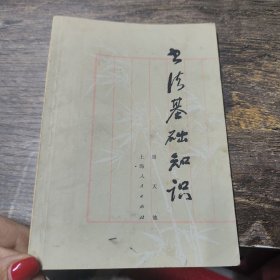 书法基础知识
周天健
上海人民出版社